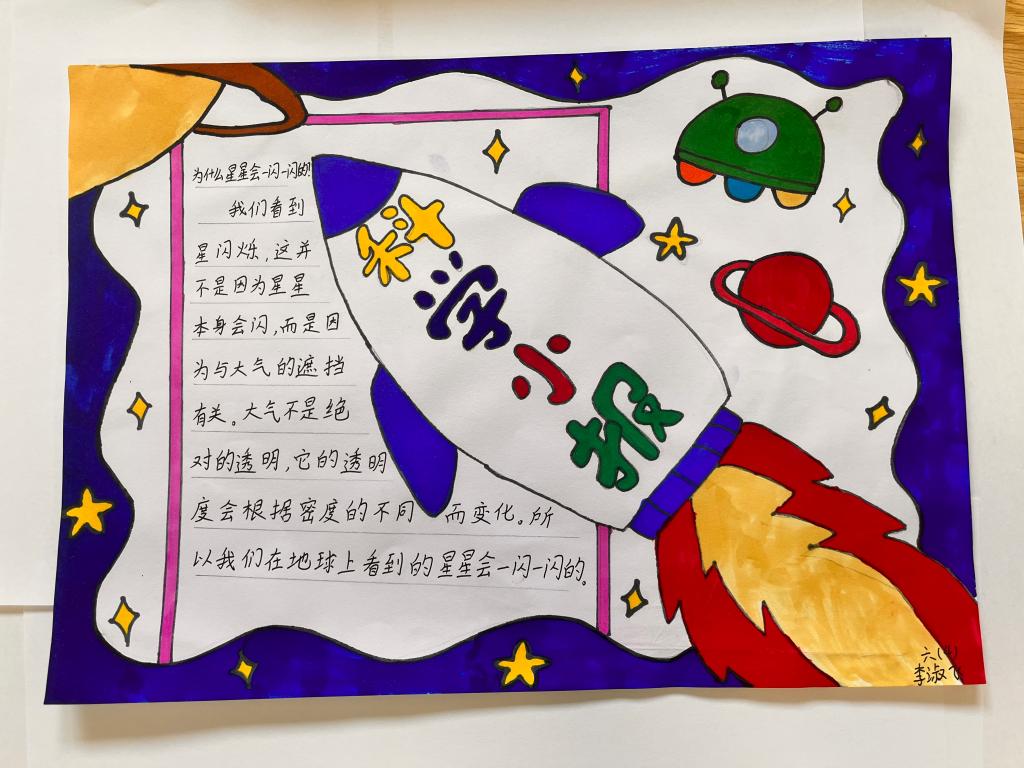 为什么星星会一闪一闪的!
我们看到
星闪烁,这并
不是因为星星
本身会闪,而是因
为与大气的遮挡
有关。大气不是绝
对的透明,它的透明
度会根据密度的不同 而变化。所
以我们在地球上看到的星星会一闪一闪的。
科学小报
六(4)
李淑